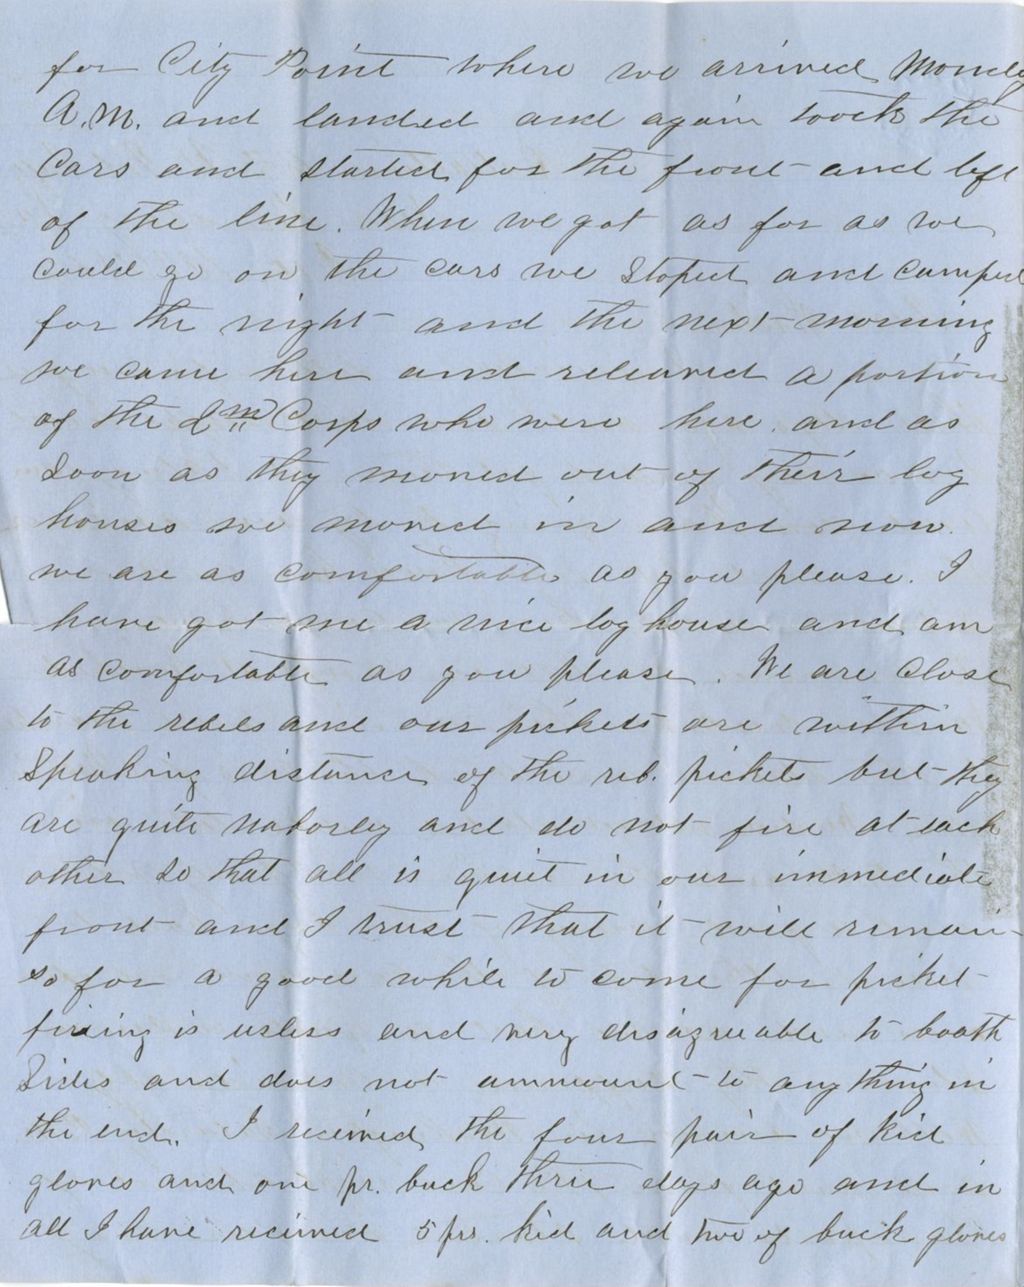 for City Point where we arrived Monday
A.M. and landed and again toock the
Cars and started for the front and left
of the line. When we got as far as we
could go on the cars we stoped and camped
for the night and the next morning
we came here and releaved a portion
of the Corps who were here and as
soon as they moved out of their log
houses we moved in and now
we are as comfortable as you please. I
have got me a nice log house and am
as comfortable as you please. We are close
to the rebels and our pickets are within
speaking distance of the reb. pickets but they
are quite and do not fire at each
other so that all is quiet in our immediate
front and I trust that it will remain
so for a good while to come for picket
firing is usless and very disagreuable to booth
sides and does not ammount to any thing in
the end. I received the four pair of kid
gloves and one pr. buck three days ago and in
all I have received 5 prs. kid and two of buck gloves